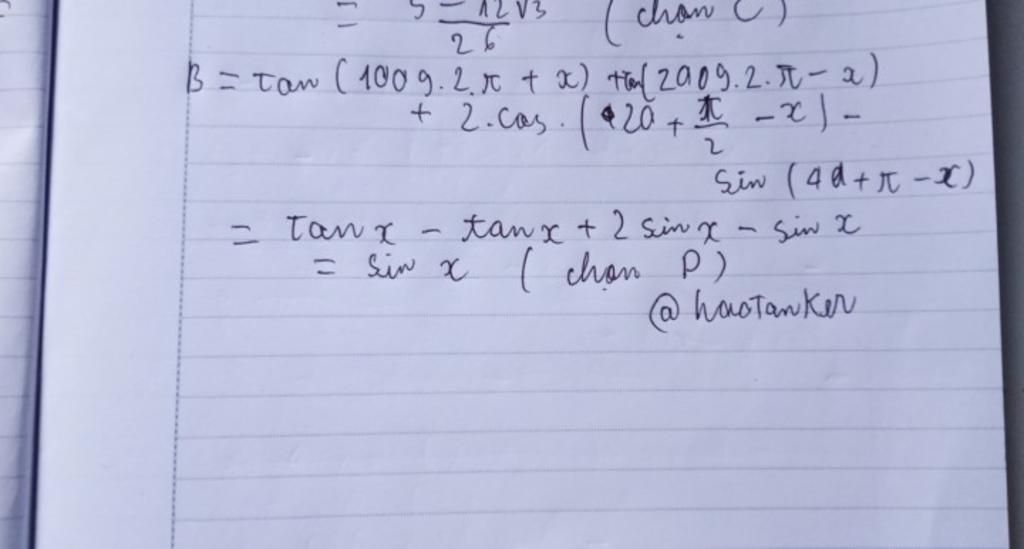 = 5 - 12√3 / 26 (chọn C)
B = tan (1009.2.π + x) + tan(2009.2.π - x)
+ 2.cos. ( 20 + π/2 - x) -
sin (4d + π - x)
= tan x - tan x + 2 sin x - sin x
= sin x ( chọn D)
@haotanker